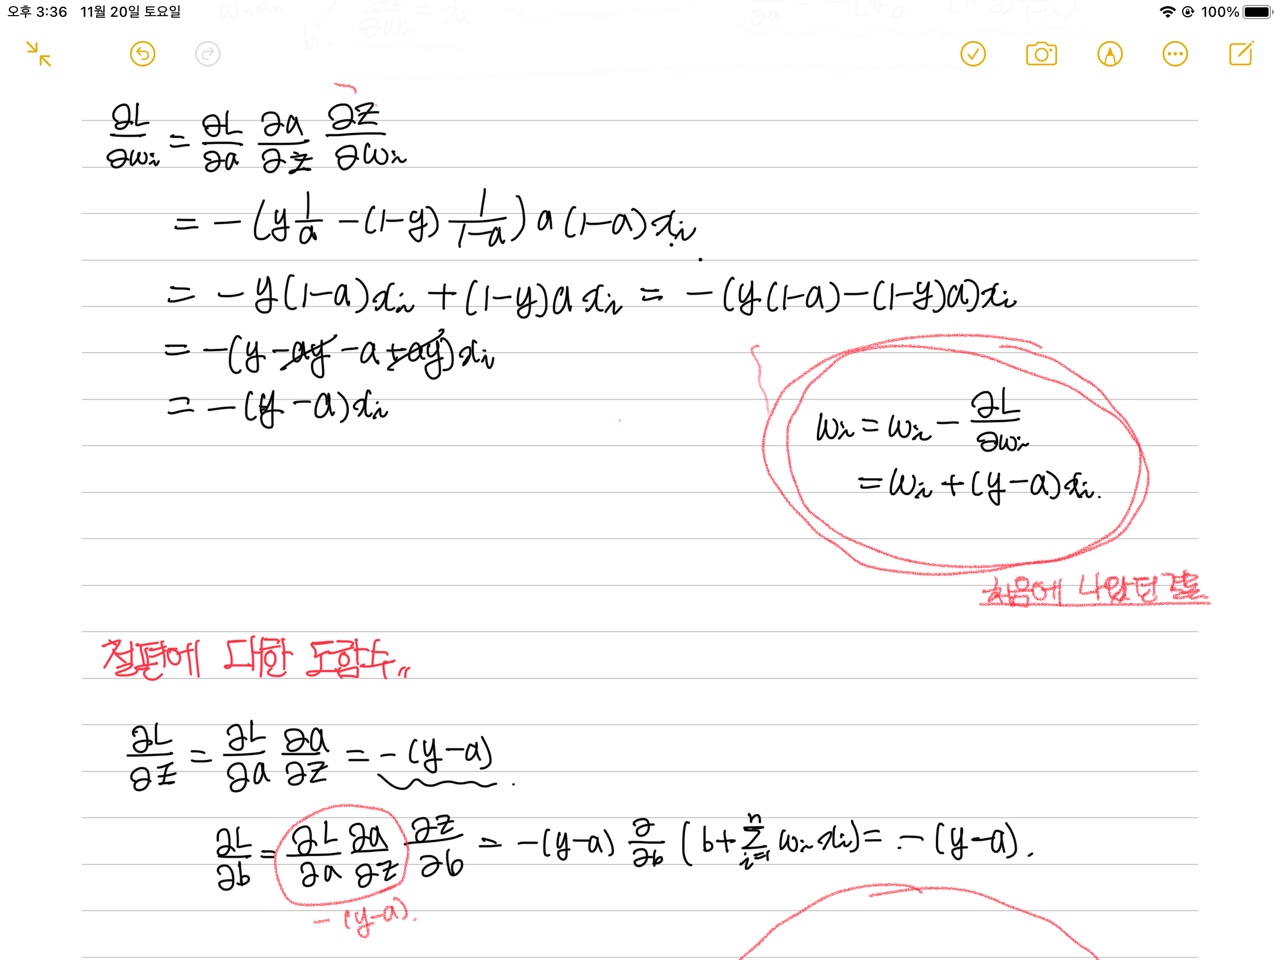 오후 3:36 11월 20일 토요일 100%
∂L/∂wᵢ = ∂L/∂a ∂a/∂z ∂z/∂wᵢ
= -(y 1/a - (1-y) 1/(1-a)) a(1-a)xᵢ
= -y(1-a)xᵢ + (1-y)a xᵢ = -(y(1-a)-(1-y)a)xᵢ
= -(y-ay-a+ay)xᵢ
= -(y-a)xᵢ
wᵢ = wᵢ - ∂L/∂wᵢ
= wᵢ + (y-a)xᵢ.
처음에 나왔던 결론
절편에 대한 도함수
∂L/∂z = ∂L/∂a ∂a/∂z = -(y-a).
∂L/∂b = ∂L/∂a ∂a/∂z ∂z/∂b = -(y-a) ∂/∂b (b+∑ⁿᵢ₌₁ wᵢxᵢ) = -(y-a).
-(y-a).